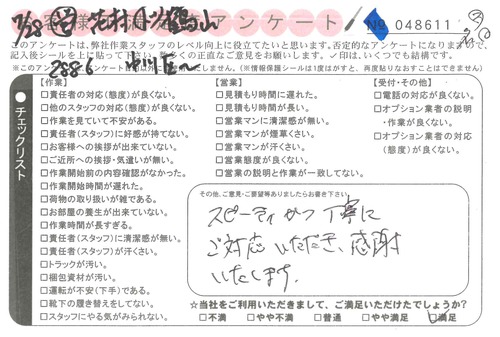 7/28
アンケート
No 048611
このアンケートは、弊社作業スタッフのレベル向上に役立てたいと思います。否定的なアンケートになりますので、
記入後シールを上に貼って下さい。数多くの正直なご意見をお願いします。✓印は、いくつでも結構です。
(※情報保護シールは1度はがすと、再度貼りなおすことはできません)
2886
チェックリスト
【作業】
□責任者の対応(態度)が良くない。
□他のスタッフの対応(態度)が良くない。
□作業を見ていて不安がある。
□責任者(スタッフ)に好感が持てない。
□お客様への挨拶が出来ていない。
□ご近所への挨拶・気遣いが無い。
□作業開始前の内容確認がなかった。
□作業開始時間が遅れた。
□荷物の取り扱いが雑である。
□お部屋の養生が出来ていない。
□作業時間が長すぎる。
□責任者(スタッフ)に清潔感が無い。
□責任者(スタッフ)が汗くさい。
□トラックが汚い。
□梱包資材が汚い。
□運転が不安(下手)である。
□靴下の履き替えをしてない。
□スタッフにやる気がみられない。
【営業】
□見積もり時間に遅れた。
□見積もり時間が長い。
□営業マンに清潔感が無い。
□営業マンが煙草くさい。
□営業マンが汗くさい。
□営業態度が良くない。
□営業の説明と作業が一致してない。
【受付・その他】
□電話の対応が良くない。
□オプション業者の説明
・作業が良くない。
□オプション業者の対応
(態度)が良くない。
その他、ご意見・ご要望等ありましたらお書き下さい。
スピーディかつ丁寧に
ご対応いただき、感謝
いたします。
☆当社をご利用いただきまして、ご満足いただけたでしょうか?
□不満 □やや不満 □普通 □やや満足 ☑満足